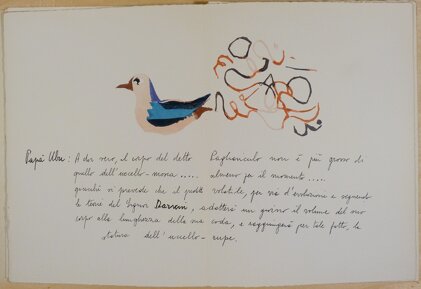 Papà Ubu: A dir vero, il corpo del detto Paglianculo non è più grosso di
quello dell'uccello-mosca..... almeno per il momento.....
giacché si prevede che il volatile, per via d'evoluzione e seguendo
le teorie del Signor Darwin, adotterà un giorno il volume del suo
corpo alla lunghezza della sua coda, e raggiungerà per tale fatto, la
statura dell'uccello-rupe.